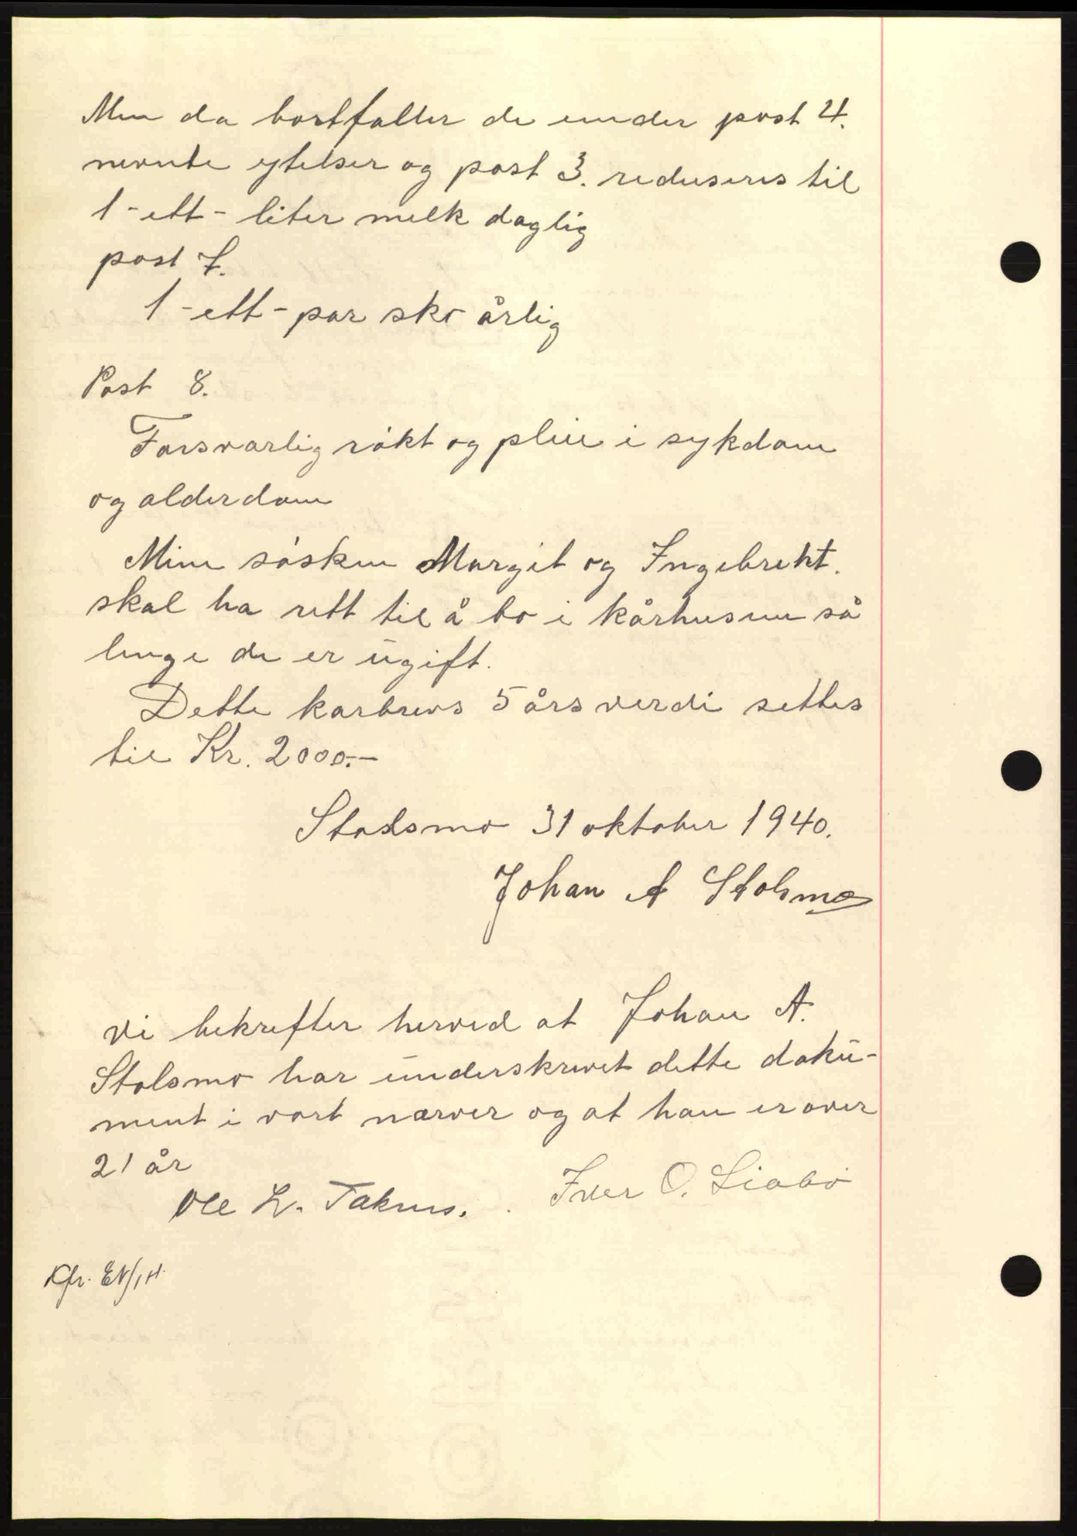 Men da bortfaller de under post 4.
nevnte ytelser og post 3. reduseres til
1-ett- liter melk daglig
post 7.
1-ett-par sko årlig
Post 8.
Forsvarlig røkt og pleie i sykdom
og alderdom
Mine søsken Margit og Ingebrekt.
skal ha rett til å bo i kårhusene så
lenge de er ugift.
Dette karbrevs 5 års verdi settes
til Kr. 2000.-
Stolsmo 31 oktober 1940.
Johan A Stolsmo
Vi bekrefter herved at Johan A.
Stolsmo har underskrevet dette doku-
ment i vort nærver og at han er over
21 år
Ole L. Iver O. Liabø
Kfr.